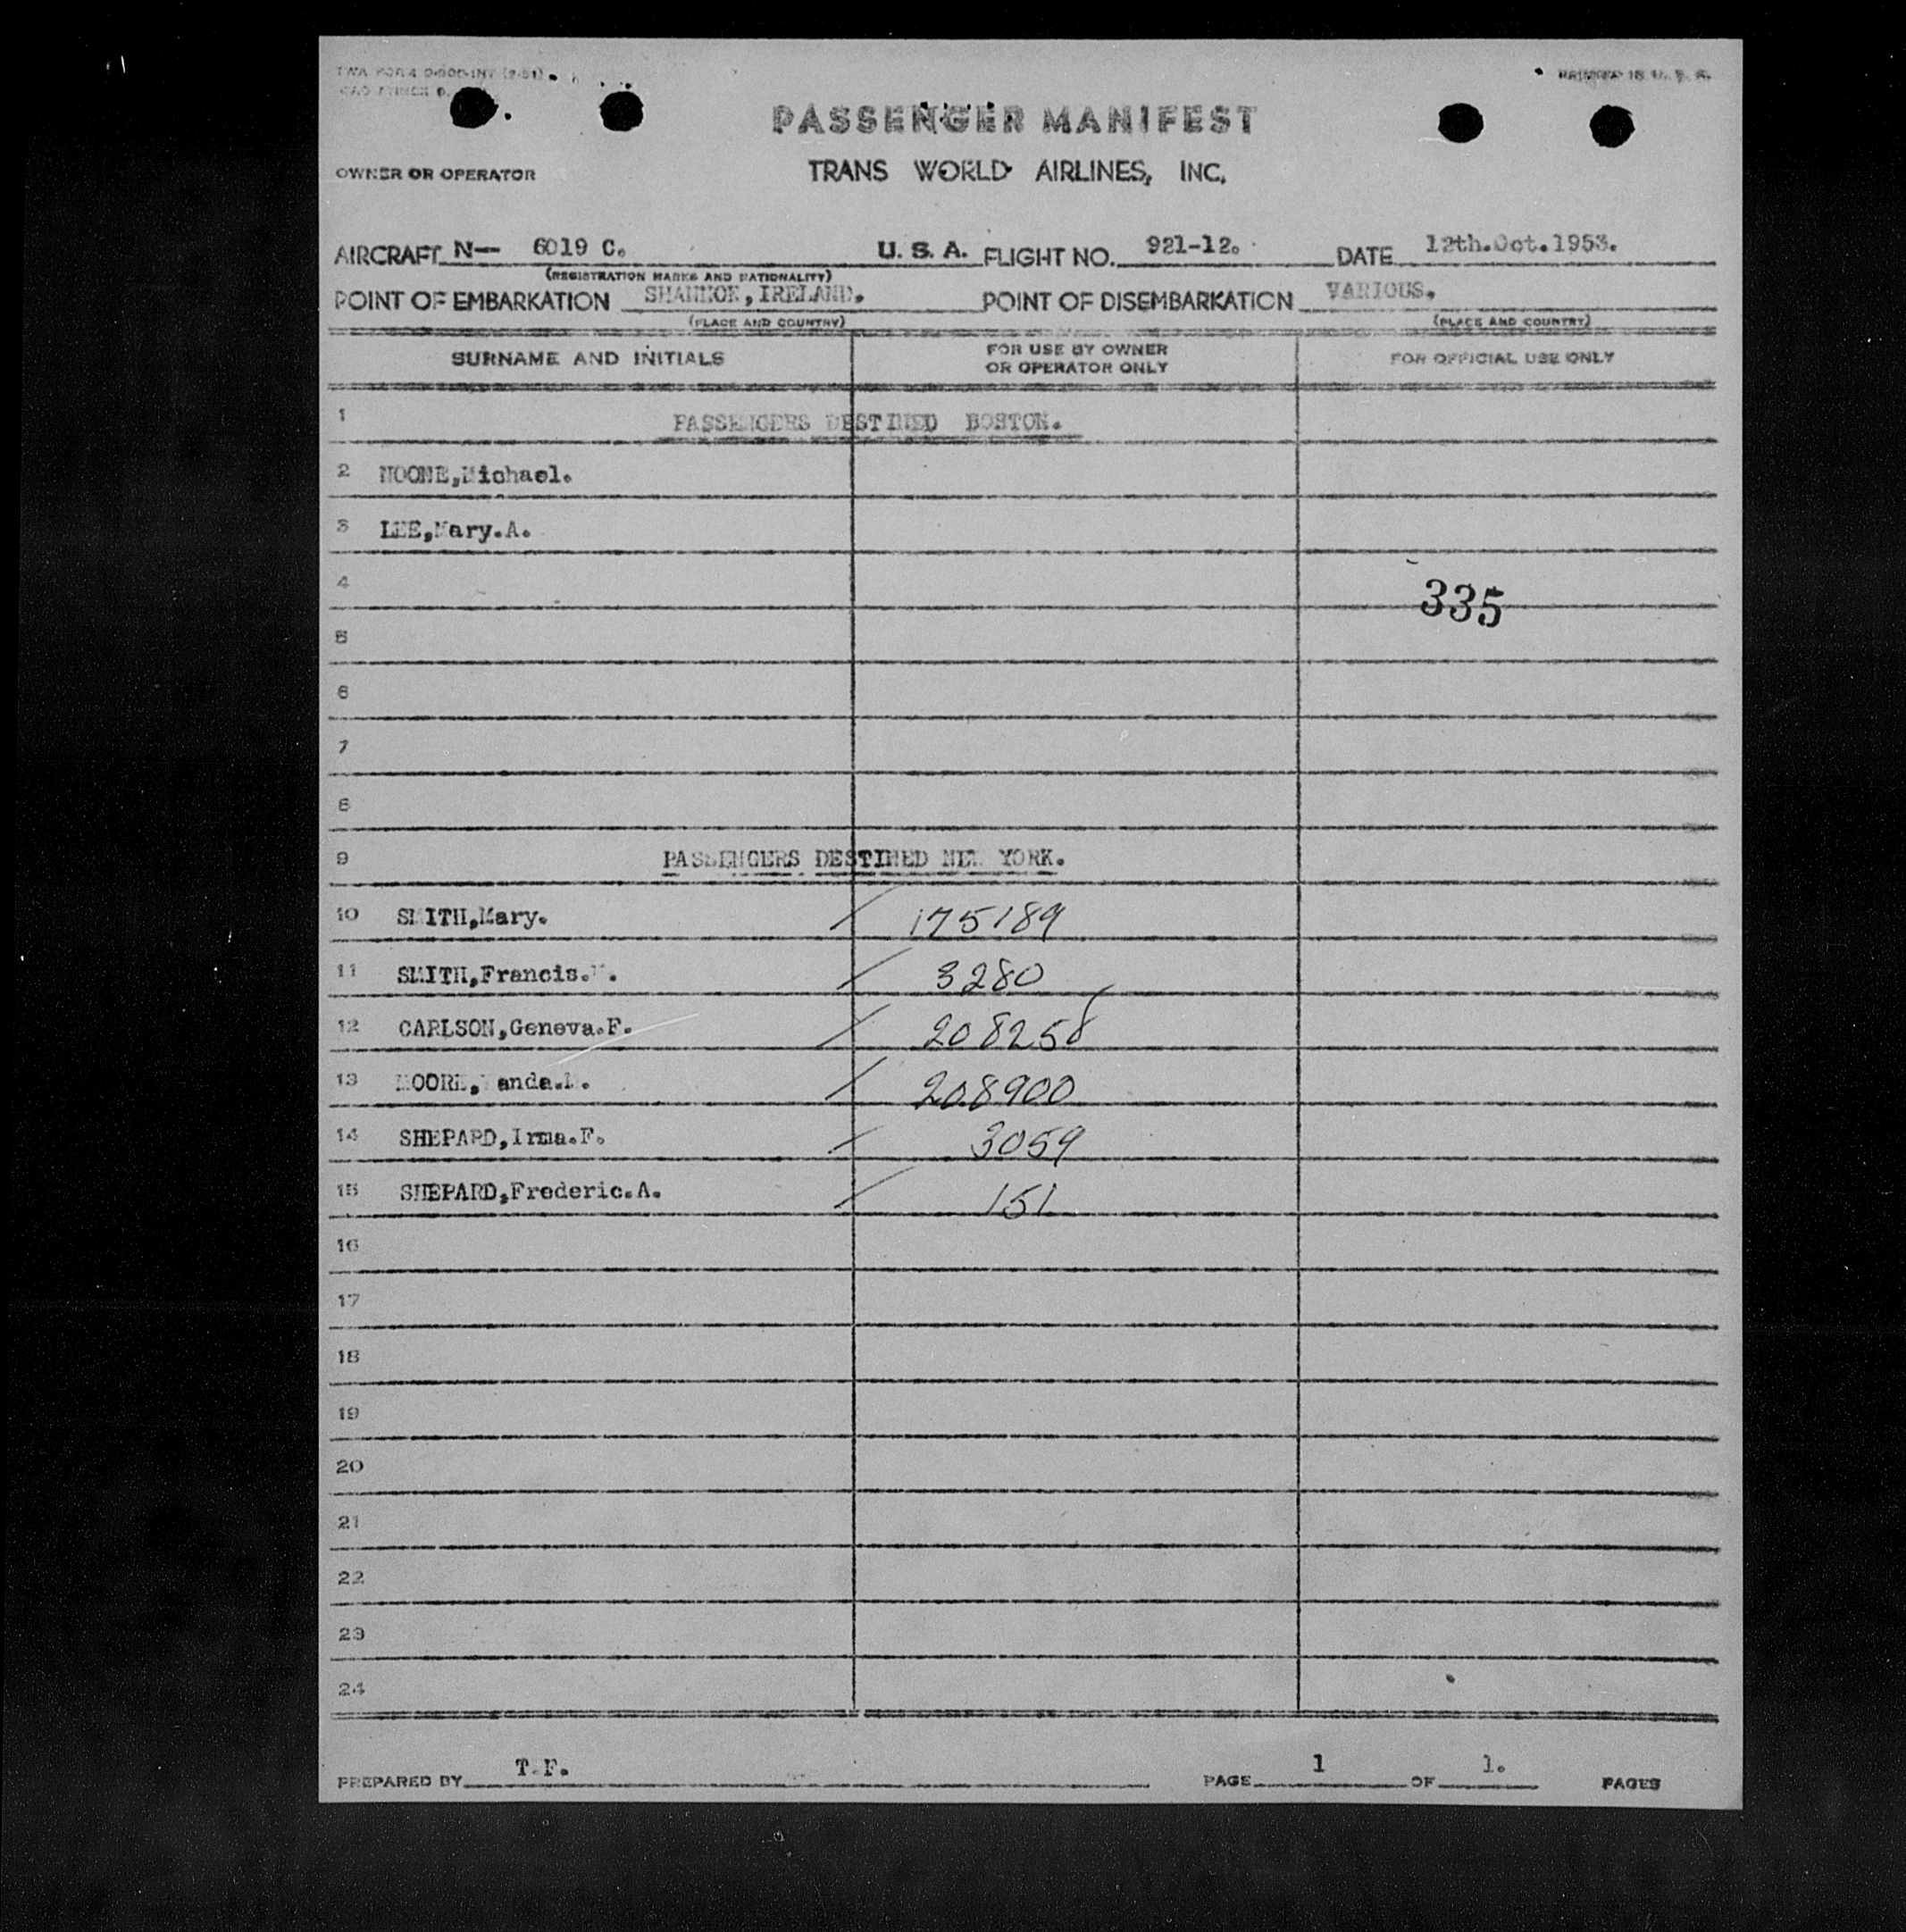 TWA FORM
PRINTED IN U. S. A.
PASSENGER MANIFEST
OWNER OR OPERATOR TRANS WORLD AIRLINES, INC.
AIRCRAFT N— 6019 C. U. S. A. FLIGHT NO. 921-12. DATE 12th.Oct.1953.
(REGISTRATION MARKS AND NATIONALITY)
POINT OF EMBARKATION SHANNON, IRELAND. POINT OF DISEMBARKATION VARIOUS.
(PLACE AND COUNTRY) (PLACE AND COUNTRY)
SURNAME AND INITIALS FOR USE BY OWNER OR OPERATOR ONLY FOR OFFICIAL USE ONLY
1 PASSENGERS DESTINED BOSTON.
2 NOONE,Michael.
3 LEE,Mary.A.
4 335
5
6
7
8
9 PASSENGERS DESTINED NEW YORK.
10 SMITH,Mary. / 175189
11 SMITH,Francis. / 3280
12 CARLSON,Geneva.F. / 208258
13 MOORE, / 208900
14 SHEPARD,Irma.F. / 3059
15 SHEPARD,Frederic.A. / 151
16
17
18
19
20
21
22
23
24
PREPARED BY T.F. PAGE 1 OF 1. PAGES